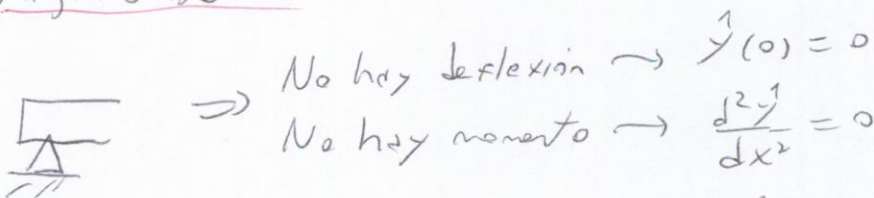 ⇒ No hay deflexión → ŷ(0) = 0
No hay momento → d²ŷ/dx² = 0